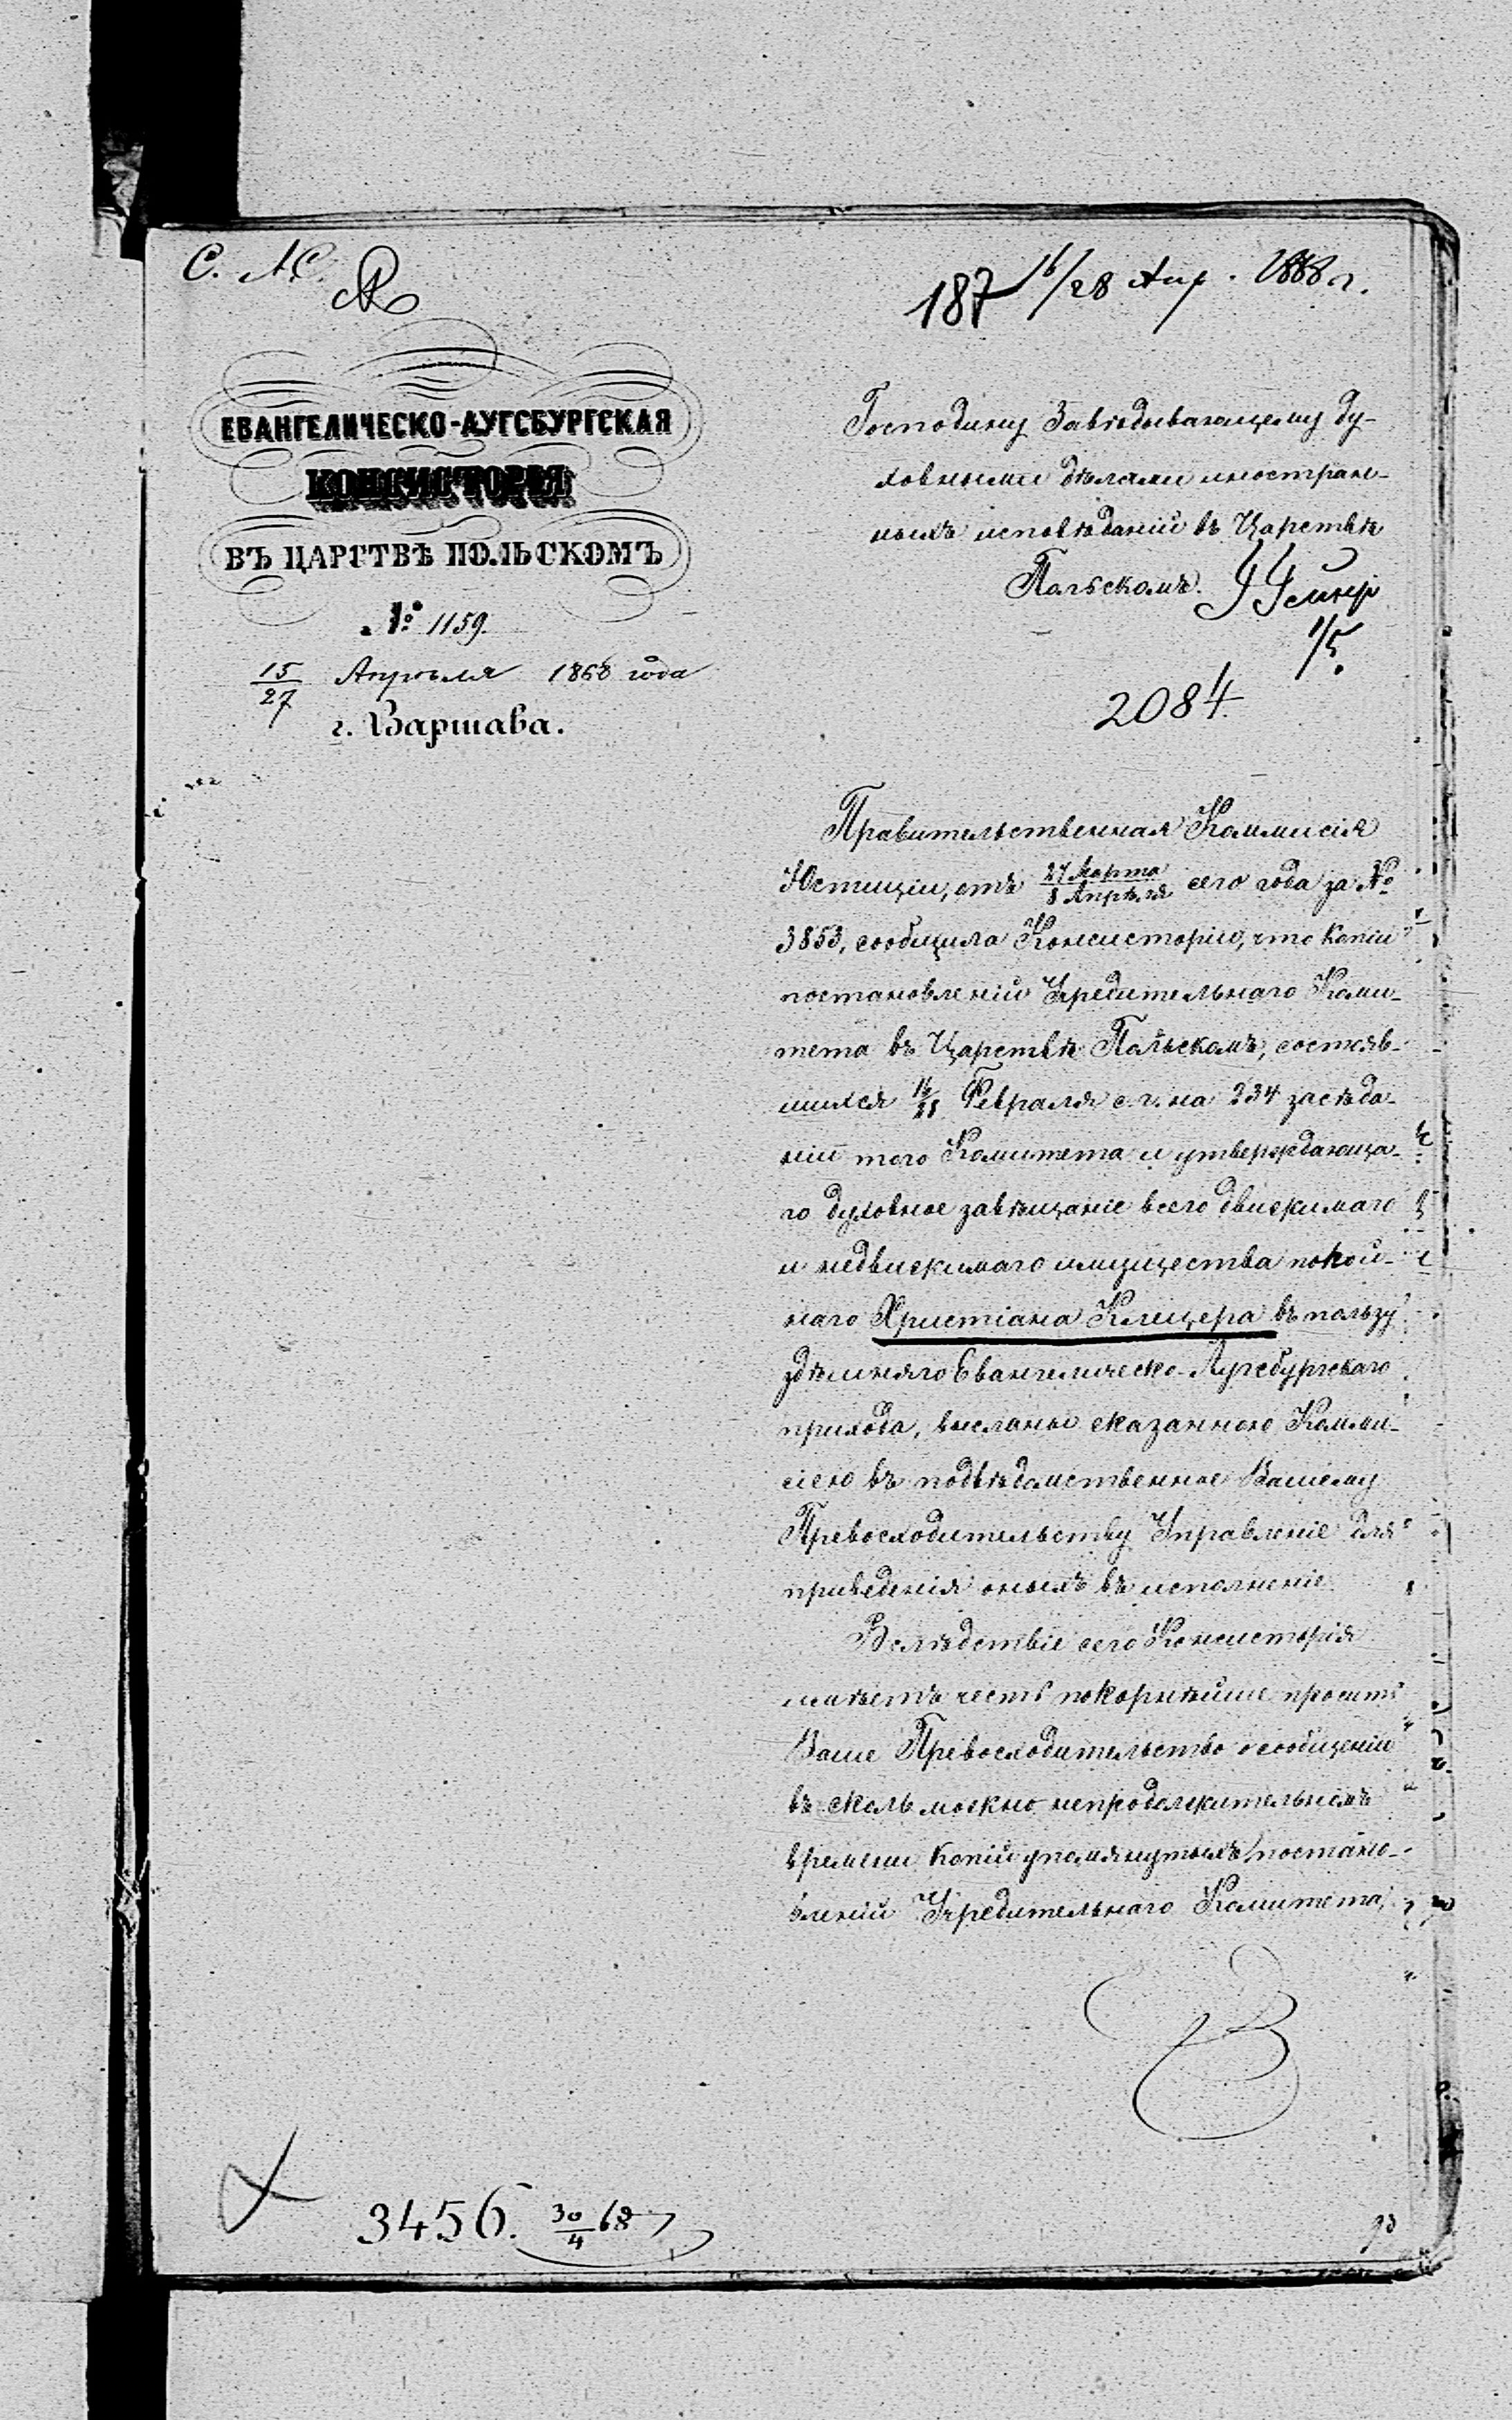 С.
187 16/28 Апр. 1868 г.
ЕВАНГЕЛИЧЕСКО-АУГСБУРГСКАЯ
КОНСИСТОРІЯ
ВЪ ЦАРСТВѢ ПОЛЬСКОМЪ
№ 1159.
15/27 Апрѣля 1868 года
г. Варшава.
Господину Завѣдывающему ду-
ховными дѣлами иностран-
ныхъ исповѣданій въ Царствѣ
Польскомъ.
1/5.
2084.
Правительственная Коммисія
Юстиціи, отъ 27 Марта/8 Апрѣля сего года за №
3853, сообщила Консисторіи, что копіи
постановленій Учредительнаго Коми-
тета въ Царствѣ Польскомъ, состояв-
шихся Февраля с. г. на 234 засѣда-
ніи того Комитета и утверждающа-
го духовное завѣщаніе всего движимаго
и недвижимаго имущества покой-
наго Христіана Клицера въ пользу
здѣшняго Евангелическо-Аугсбургскаго
прихода, высланы сказанною Комми-
сіею въ подвѣдомственное Вашему
Превосходительству Управленіе для
приведенія оныхъ въ исполненіе.
Вслѣдствіе сего Консисторія
имѣетъ честь покорнѣйше просить
Ваше Превосходительство о сообщеніи
въ сколь можно непродолжительномъ
времени копій упомянутыхъ постано-
вленій Учредительнаго Комитета,
3456. 30/4 68